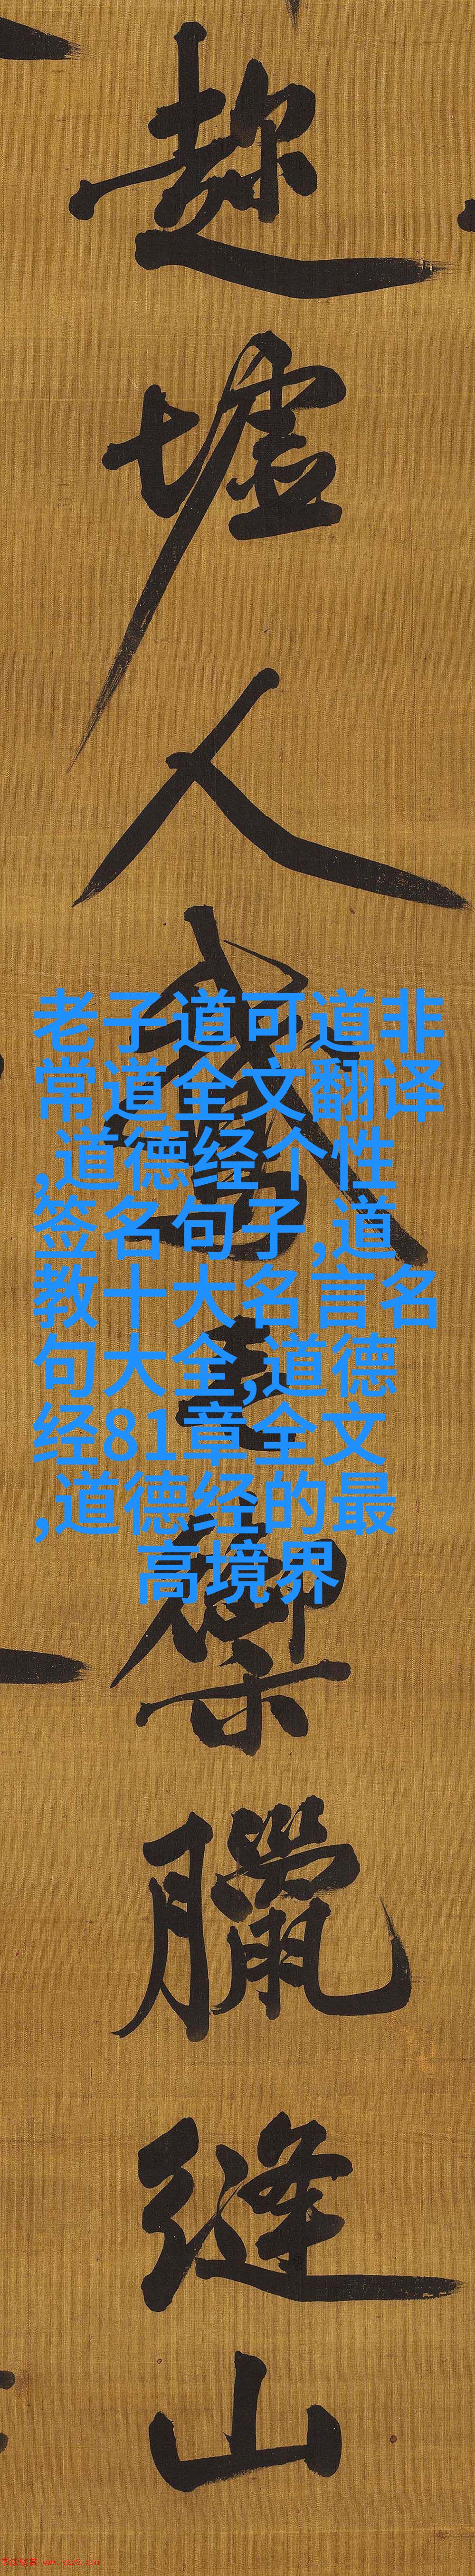 趂墟人鵞毛禦臘縫山
老子道可道非
常道全文翻译
,道德经个性
签名句子,道
教十大名言名
句大全,道德
经81章全文
,道德经的最
高境界